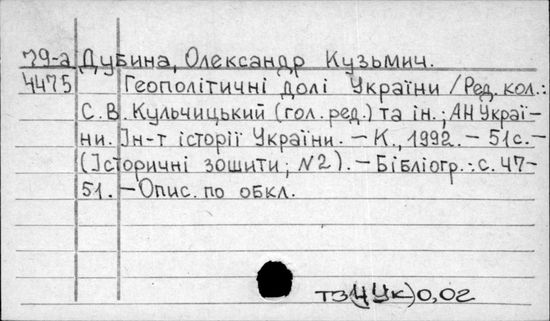 79-а Дубина, Олександр Кузьмич.
4475 Геополітичні долі України / Ред. кол.:
С. В. Кульчицький (гол. ред.) та ін.; АН Украї-
ни. Ін-т історії України. — К., 1992. — 51 с. —
(Історичні зошити; N2). — Бібліогр.: с. 47-
51. — Опис. по обкл.
Т3(4Ук)0,02